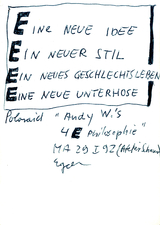 EINE NEUE IDEE
EIN NEUER STIL
EIN NEUES GESCHLECHTSLEBEN
EINE NEUE UNTERHOSE
Polaroid "Andy W.'s
4 E Philosophie"
MA 29 I 92